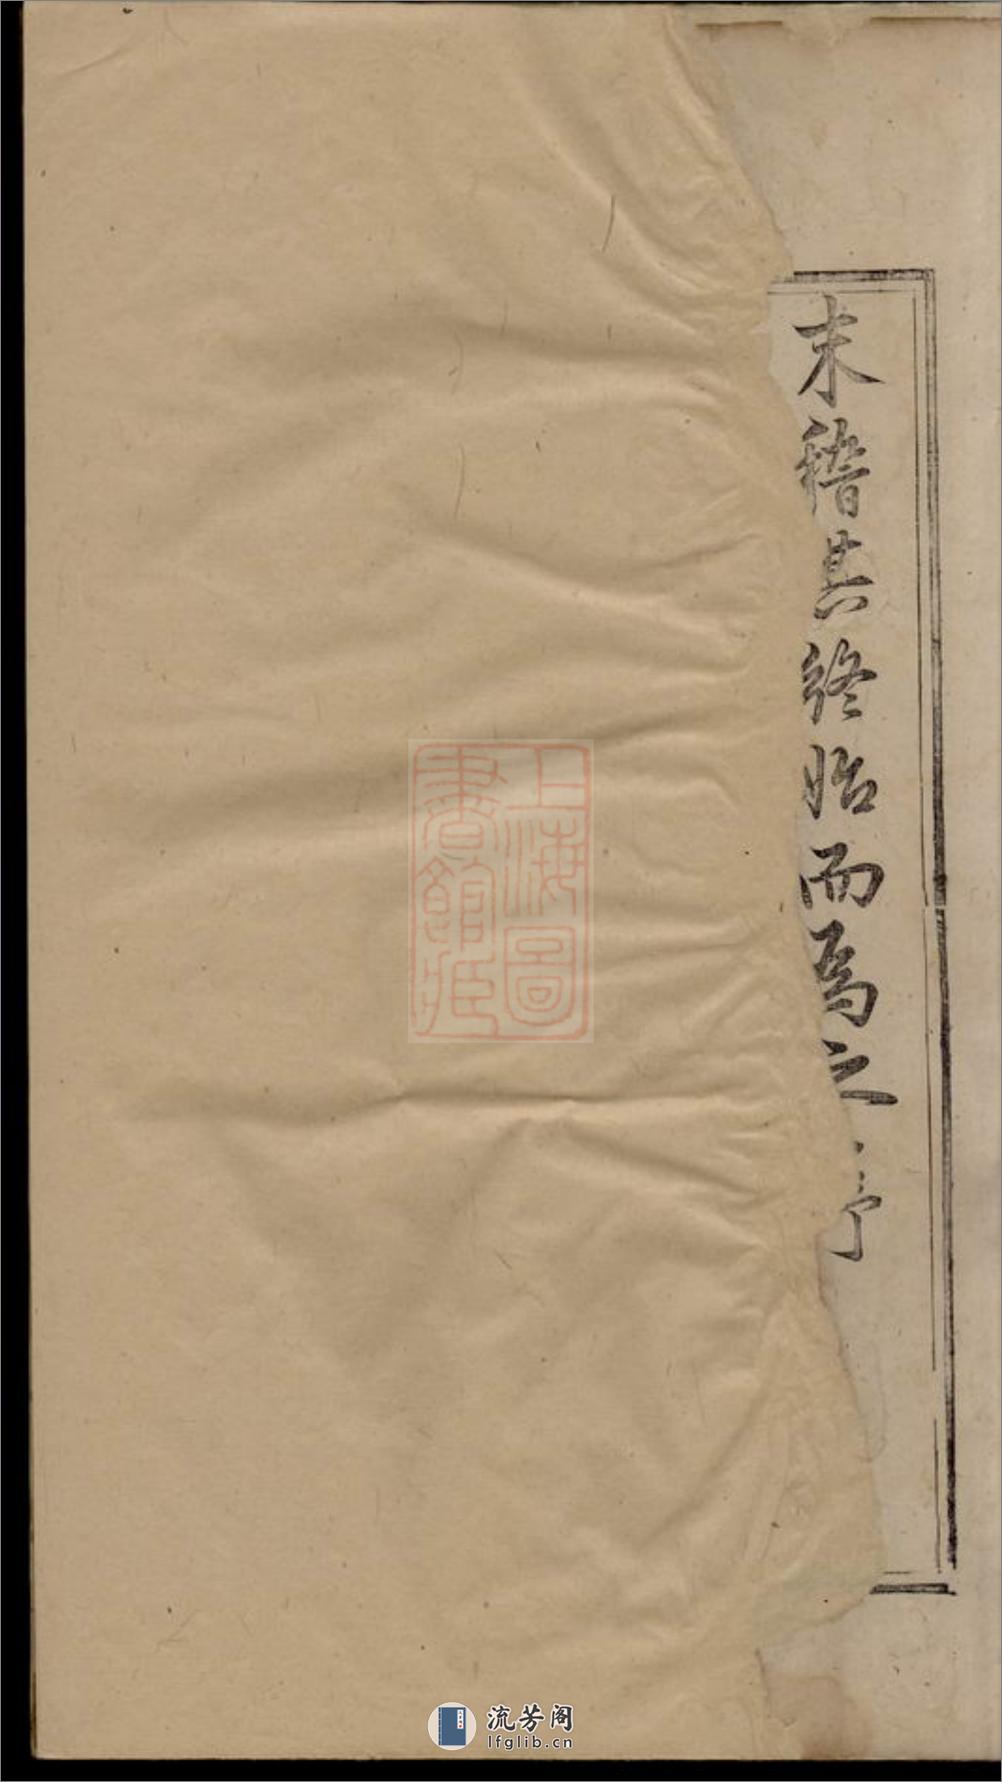 末稽其終始而為之序
上海圖
書館藏
流芳阁
lfglib.cn